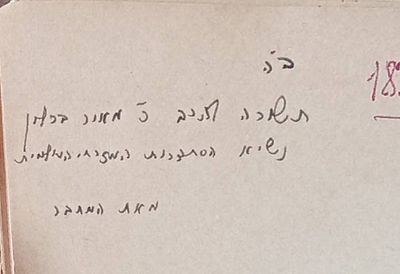 ב"ה
תשורה להרב ר' מאיר ברלין
נשיא הסתדרות המזרחי העולמית
מאת המחבר